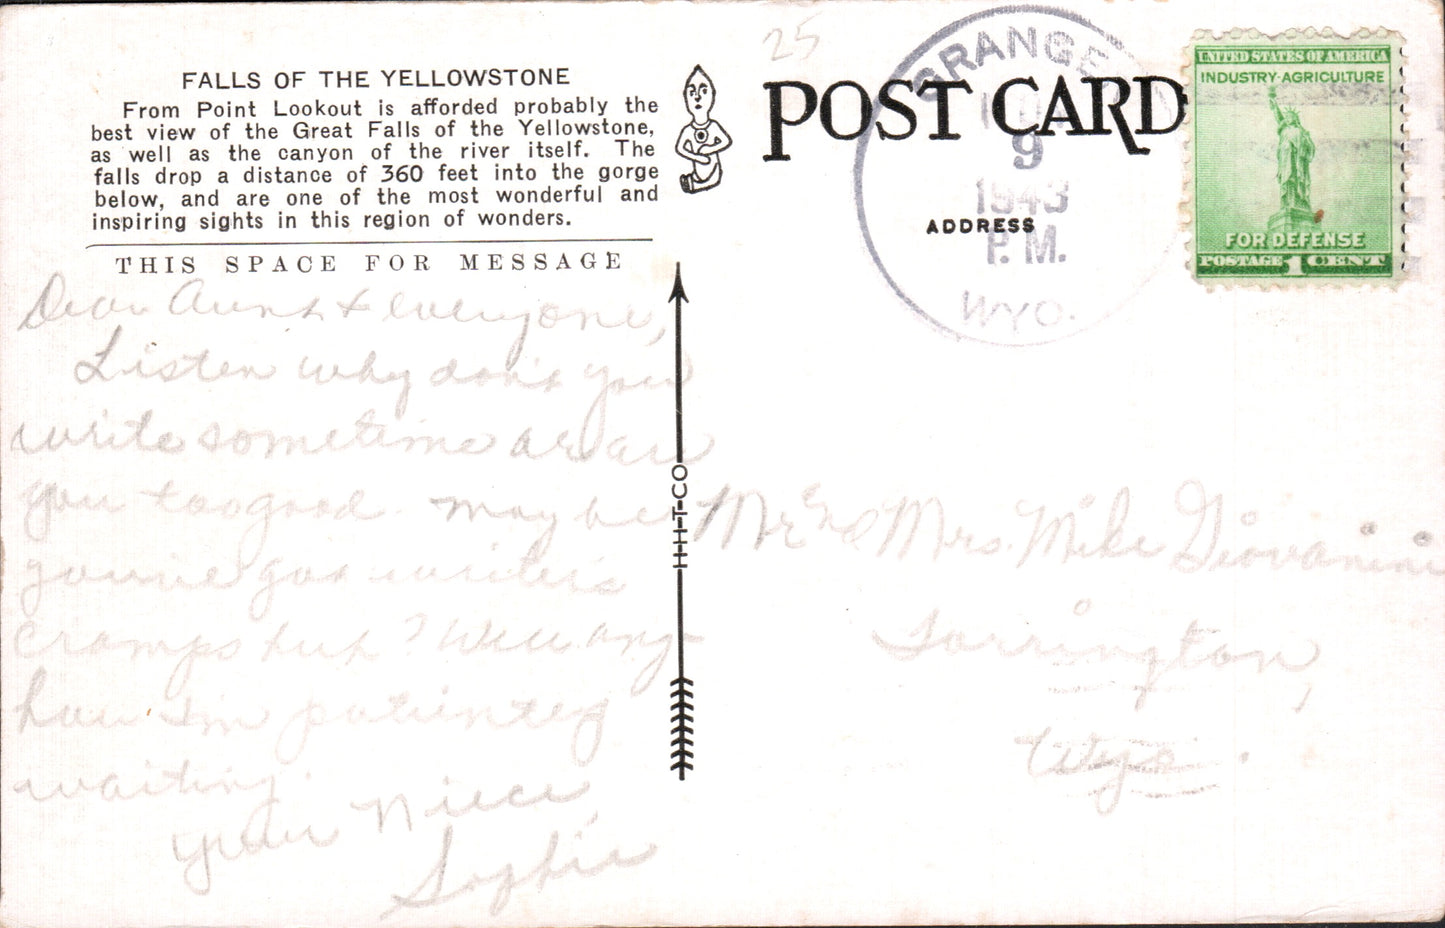 25
FALLS OF THE YELLOWSTONE
From Point Lookout is afforded probably the
best view of the Great Falls of the Yellowstone,
as well as the canyon of the river itself. The
falls drop a distance of 360 feet into the gorge
below, and are one of the most wonderful and
inspiring sights in this region of wonders.
THIS SPACE FOR MESSAGE
Dear Aunt & everyone,
Listen why don't you
write sometime or are
you too good. May be
you've got writers
cramps huh? Well any-
how I'm patiently
waiting.
your Niece,
Sophie
H-H-T-CO
POST CARD
ADDRESS
GRANGE
9
1943
P.M.
WYO.
UNITED STATES OF AMERICA
INDUSTRY·AGRICULTURE
FOR DEFENSE
POSTAGE 1 CENT
Mr. and Mrs. Mike Giovanini
Torrington,
Wyo.